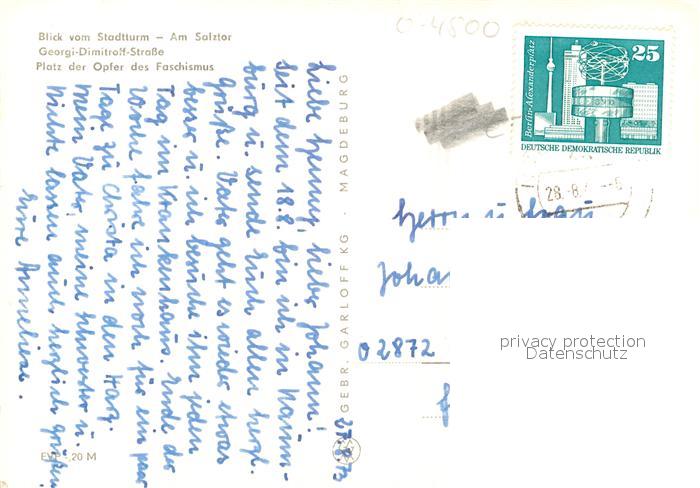 Blick vom Stadtturm – Am Salztor
Georgi-Dimitroff-Straße
Platz der Opfer des Faschismus
0-4500
Berlin-Alexanderplatz
25
DEUTSCHE DEMOKRATISCHE REPUBLIK
28.-8.
27.8.73
Liebe Henny, lieber Johann!
Seit dem 18.8. bin ich in Naum-
burg u. sende Euch allen herzl.
Grüße. Vater geht es wieder etwas
besser u. ich besuche ihn jeden
Tag im Krankenhaus. Ende der
Woche fahre ich noch für ein paar
Tage zu Christa in den Harz.
Mein Vater, meine Schwester u.
Nichte lassen auch herzlich grüßen
Eure Anneliese.
GEBR. GARLOFF KG · MAGDEBURG
Herrn u. Frau
Joha
02872
privacy protection
Datenschutz
EVP -,20 M